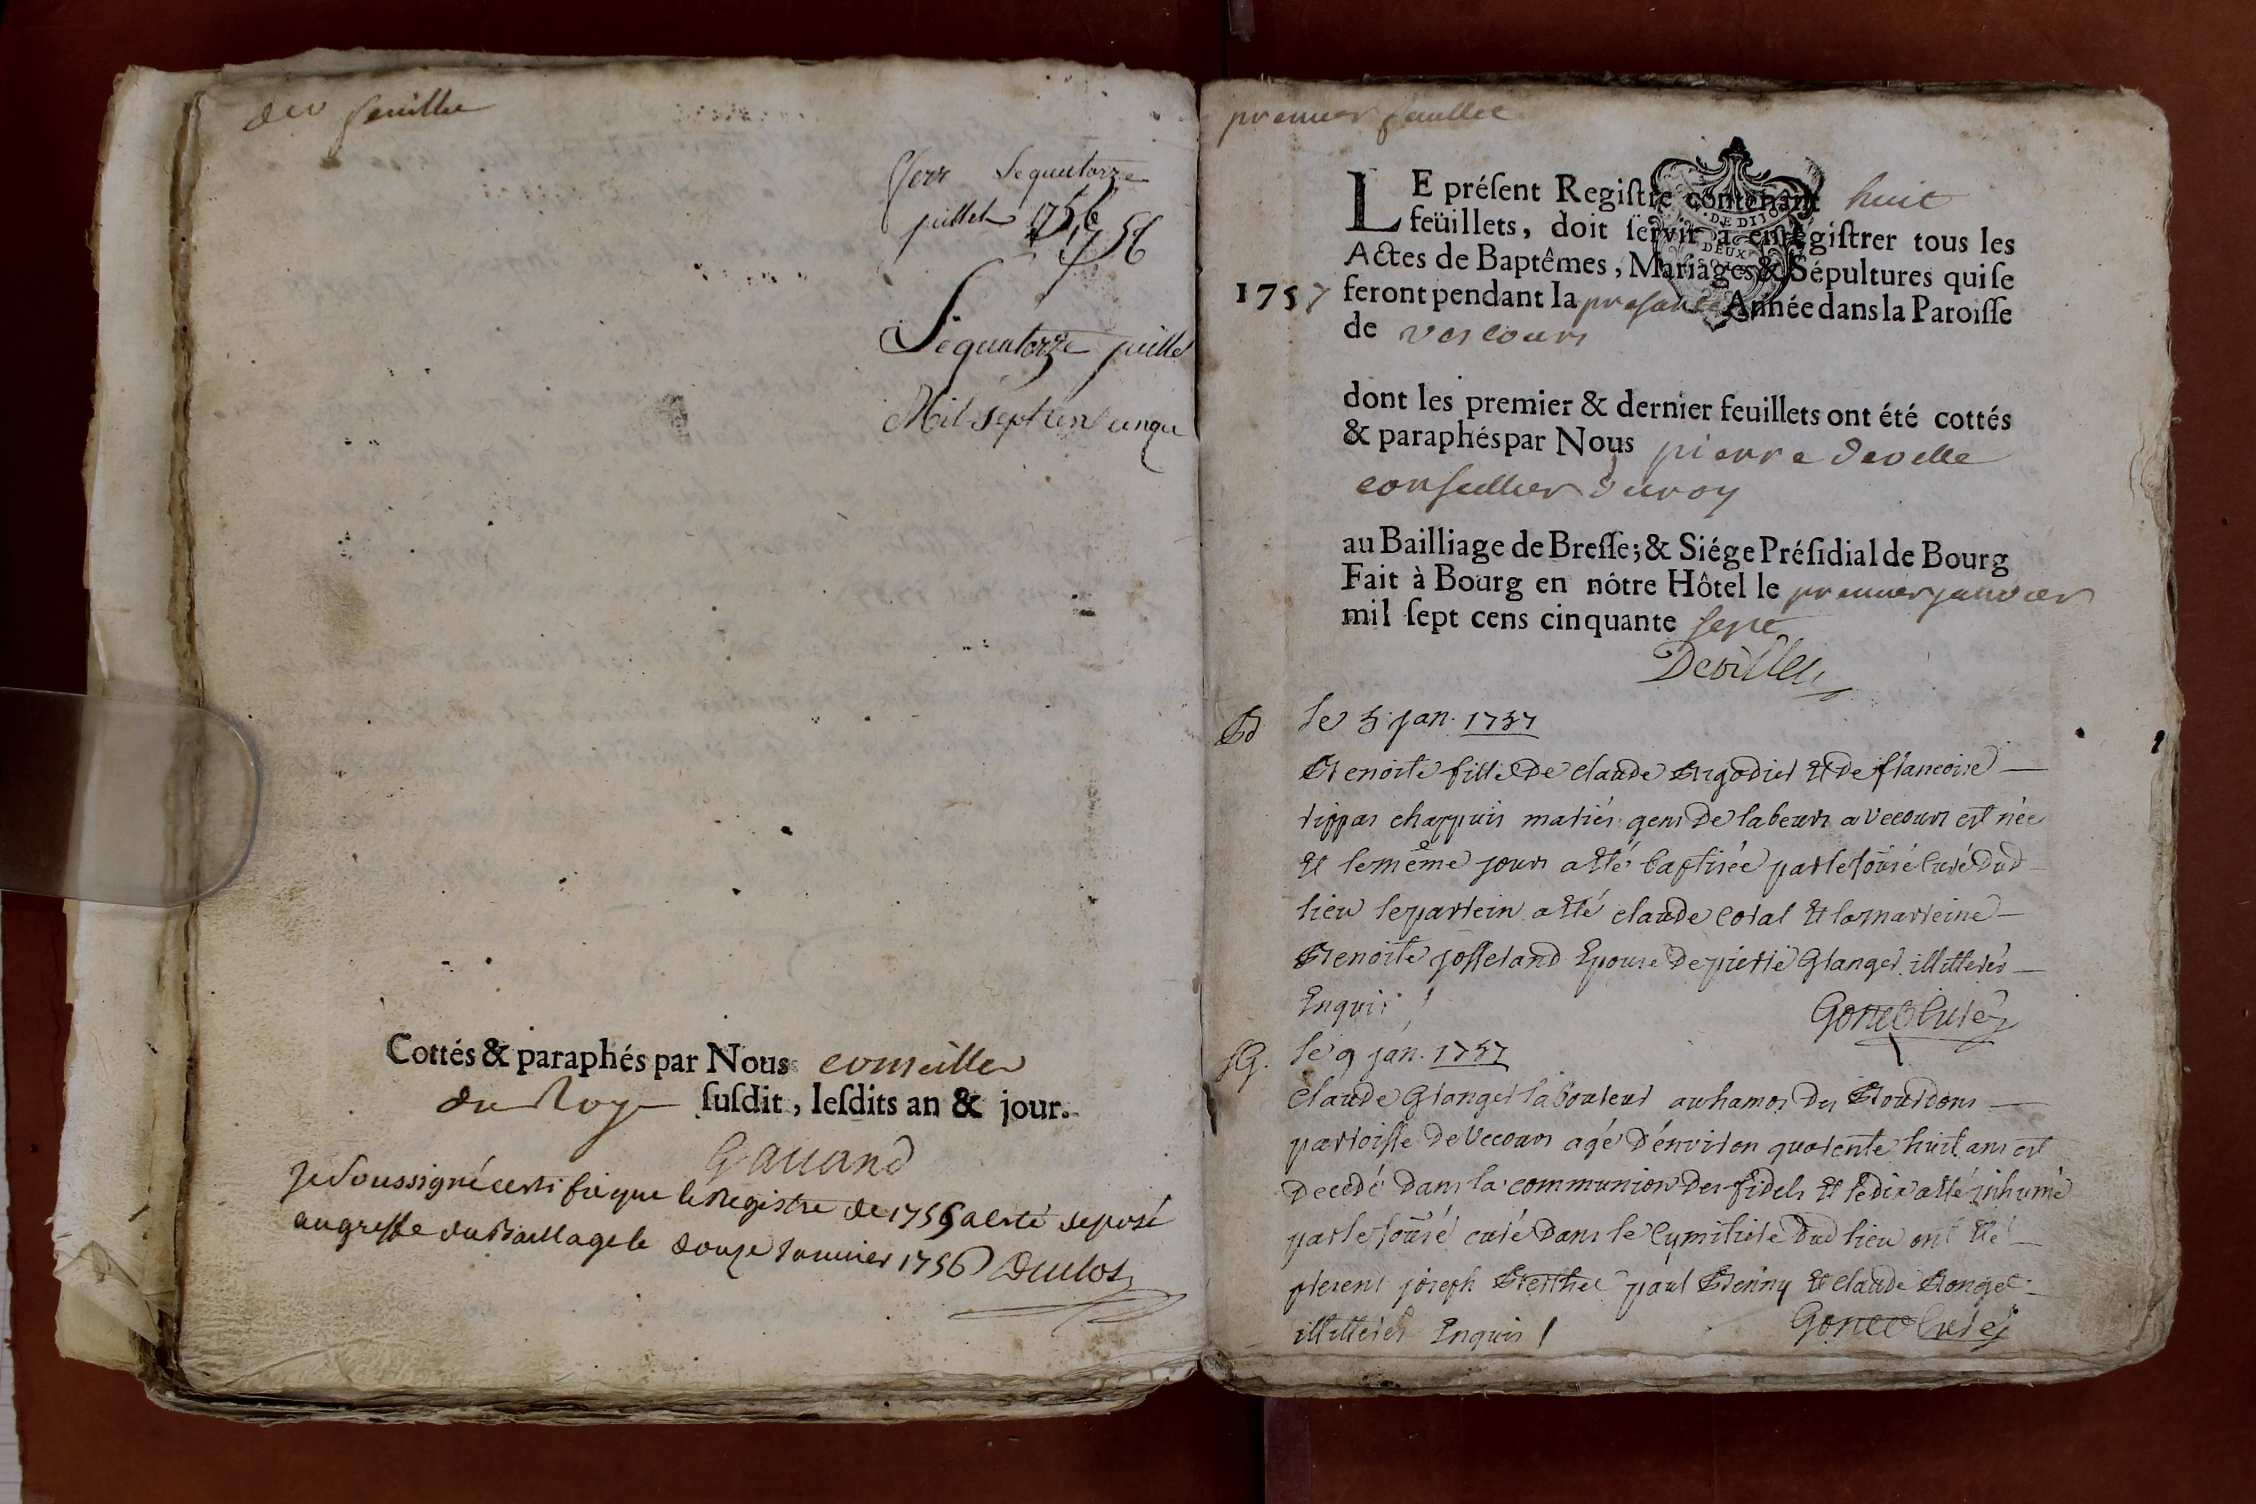 der feuillee
Le quatorze
juillet 1756
1756
Le quatorze juillet
Mil sept cens cinqu
Cottés & paraphés par Nous conseiller
du Roy susdit, lesdits an & jour.
Gauand
Je soussigné certifie que le Registre de 1755 a esté deposé
au greffe du Baillage le douze Janvier 1756 Duclos
premier feuillet
LE présent Registre contenant huit
feüillets, doit servir à enrégistrer tous les
Actes de Baptêmes, Mariages & Sépultures qui se
1757 feront pendant la presante Année dans la Paroisse
de vescours
DE DIJON
DEUX
dont les premier & dernier feuillets ont été cottés
& paraphés par Nous pierre deville
conseillier du roy
au Bailliage de Bresse; & Siége Présidial de Bourg
Fait à Bourg en nôtre Hôtel le premier janvier
mil sept cens cinquante sept
Deville
le 5 jan. 1757
Benoite fille de claude Brigodier et de francoise
rippas chappuis mariés gens de labeurs a vecours est née
et le même jour a eté baptisée par le soûsé curé dud
lieu le parrein a eté claude Coral et la marreine
Benoite josserand Epouse de pierre Granger illitterés
Enquis
Gonet Curé
SG. le 9 jan. 1757
Claude Granger laboureur au hamos des Bourdons
parroisse de Vecours agé d'environ quarente huit ans est
decedé dans la communion des fidels et le dix a eté inhumé
par le soûsé curé dans le Cymitiere dud lieu ont eté
presens joseph Berthet paul Brenny et claude Bonget
illitterés Enquis
Gonet Curé